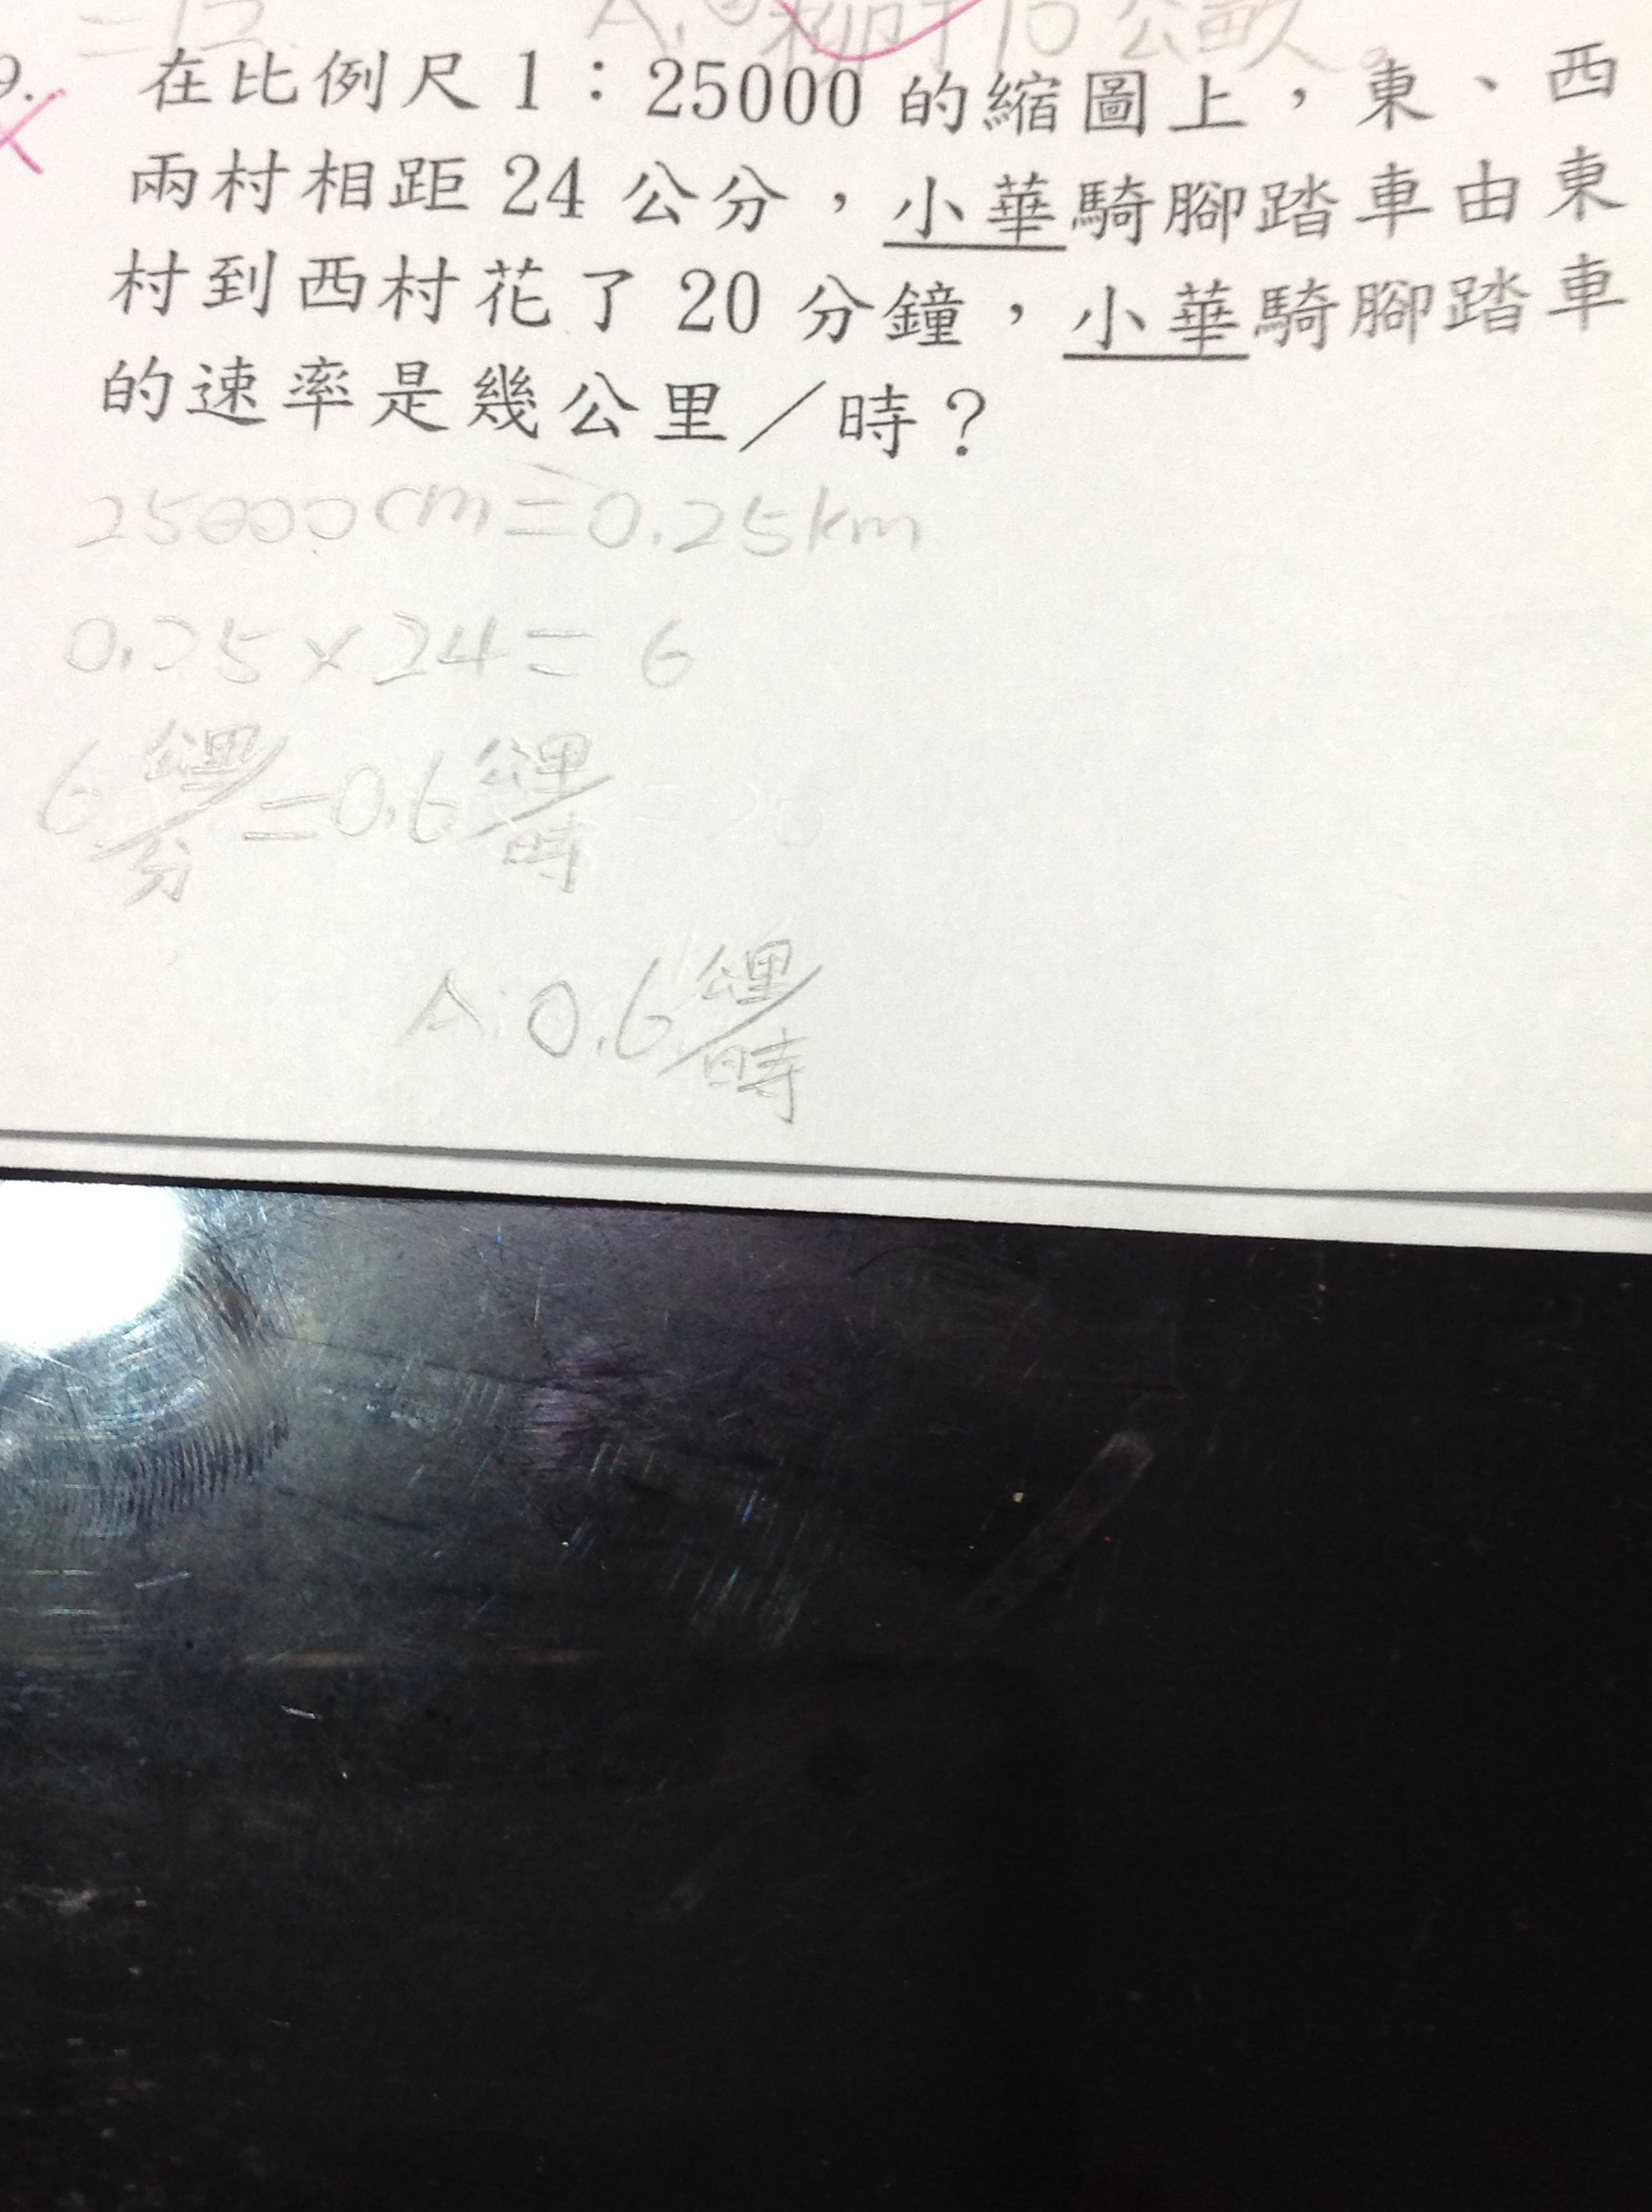 =15
A:②
10公畝
9. 在比例尺1：25000的縮圖上，東、西
兩村相距24公分，小華騎腳踏車由東
村到西村花了20分鐘，小華騎腳踏車
的速率是幾公里／時？
25000cm=0.25km
0.25×24=6
6公里/分=0.6公里/時
A:0.6公里/時